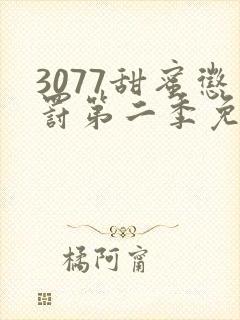 3077甜蜜惩
罚第二季免
橘阿甯